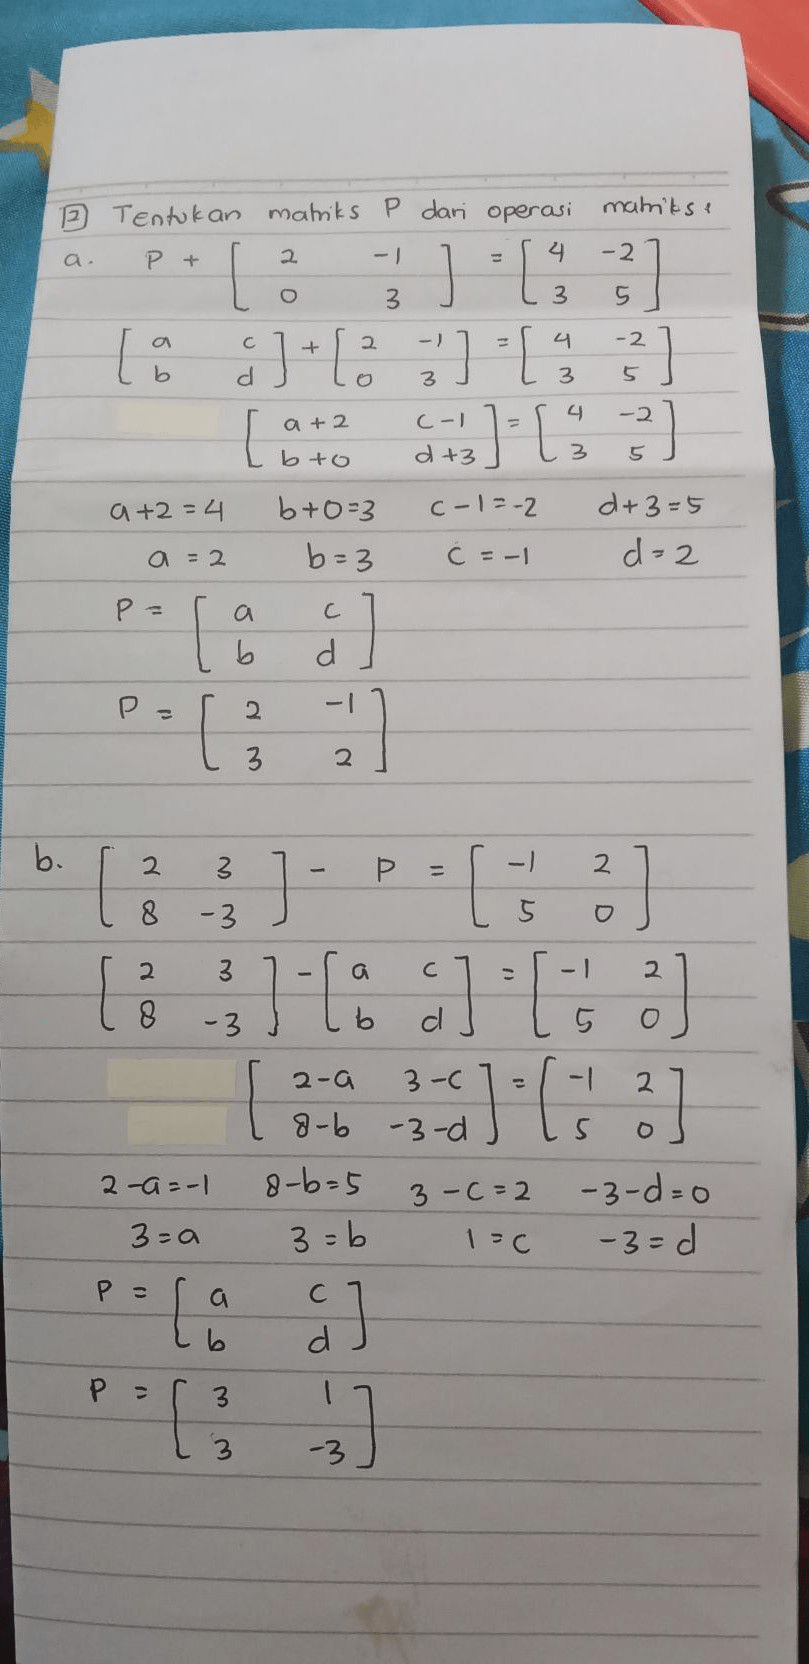 2 Tentukan matriks P dari operasi matriks :
a. P + [ 2 -1 ] = [ 4 -2 ]
[ 0 3 ] [ 3 5 ]
[ a c ] + [ 2 -1 ] = [ 4 -2 ]
[ b d ] [ 0 3 ] [ 3 5 ]
[ a+2 c-1 ] = [ 4 -2 ]
[ b+0 d+3 ] [ 3 5 ]
a+2=4 b+0=3 c-1=-2 d+3=5
a=2 b=3 c=-1 d=2
P = [ a c ]
[ b d ]
P = [ 2 -1 ]
[ 3 2 ]
b. [ 2 3 ] - P = [ -1 2 ]
[ 8 -3 ] [ 5 0 ]
[ 2 3 ] - [ a c ] = [ -1 2 ]
[ 8 -3 ] [ b d ] [ 5 0 ]
[ 2-a 3-c ] = [ -1 2 ]
[ 8-b -3-d ] [ 5 0 ]
2-a=-1 8-b=5 3-c=2 -3-d=0
3=a 3=b 1=c -3=d
P = [ a c ]
[ b d ]
P = [ 3 1 ]
[ 3 -3 ]